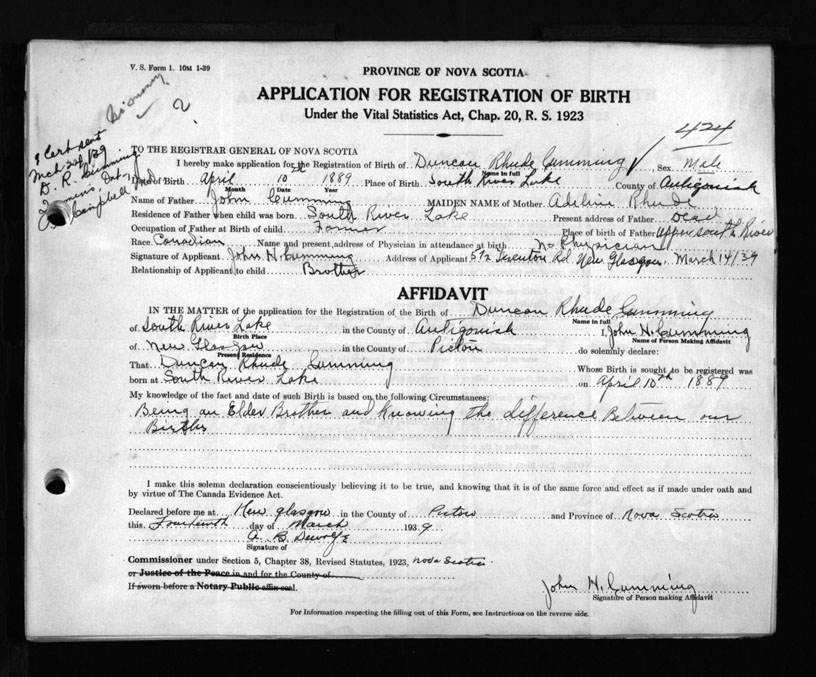 V. S. Form 1. 10M 1-39
PROVINCE OF NOVA SCOTIA
APPLICATION FOR REGISTRATION OF BIRTH
Under the Vital Statistics Act, Chap. 20, R. S. 1923
2
424
Cert sent
Mch 24/39
D. R. Cumming
Campbell
TO THE REGISTRAR GENERAL OF NOVA SCOTIA
I hereby make application for the Registration of Birth of Duncan Rhude Cumming Sex Male
Name in full
Date of Birth April 10th 1889 Place of Birth South River Lake County of Antigonish
Month Date Year
Name of Father John Cumming MAIDEN NAME of Mother Adeline Rhude
Residence of Father when child was born South River Lake Present address of Father Dead
Occupation of Father at Birth of child Farmer Place of birth of Father Upper South River
Race Canadian Name and present address of Physician in attendance at birth No Physician
Signature of Applicant John H. Cumming Address of Applicant Rd. New Glasgow. March 14/39
Relationship of Applicant to child Brother
AFFIDAVIT
IN THE MATTER of the application for the Registration of the Birth of Duncan Rhude Cumming
Name in full
of South River Lake in the County of Antigonish I, John H. Cumming
Birth Place Name of Person Making Affidavit
of New Glasgow in the County of Pictou do solemnly declare:
Present Residence
That Duncan Rhude Cumming Whose Birth is sought to be registered was
born at South River Lake on April 10th 1889
My knowledge of the fact and date of such Birth is based on the following Circumstances:
Being an Elder Brother and Knowing the difference Between our
Births
I make this solemn declaration conscientiously believing it to be true, and knowing that it is of the same force and effect as if made under oath and
by virtue of The Canada Evidence Act.
Declared before me at New Glasgow in the County of Pictou and Province of Nova Scotia
this Fourteenth day of March 1939
A. B. Dewolfe
Signature of
Commissioner under Section 5, Chapter 38, Revised Statutes, 1923, Nova Scotia
or Justice of the Peace in and for the County of
If sworn before a Notary Public affix seal.
John H. Cumming
Signature of Person making Affidavit
For Information respecting the filling out of this Form, see Instructions on the reverse side.